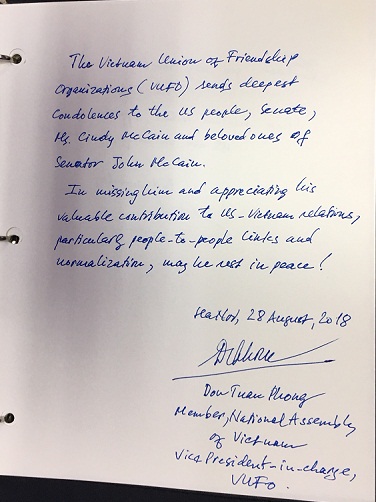 The Vietnam Union of Friendship
Organizations (VUFO) sends deepest
condolences to the US people, Senate,
Ms. Cindy McCain and beloved ones of
Senator John McCain.
In missing him and appreciating his
valuable contribution to US-Vietnam relations,
particularly people-to-people links and
normalization, may he rest in peace!
Hanoi, 28 August, 2018
Don Tuan Phong
Member, National Assembly
of Vietnam
Vice President-in-charge,
VUFO.